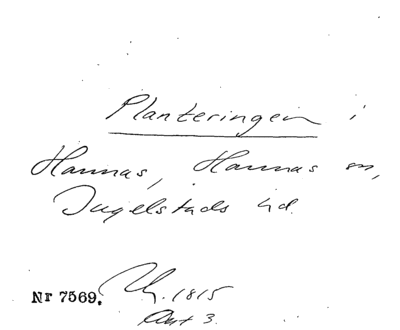 Planteringen i
Hannas, Hannas sn,
Ingelstads hd.
Nr 7569.
1815
3.